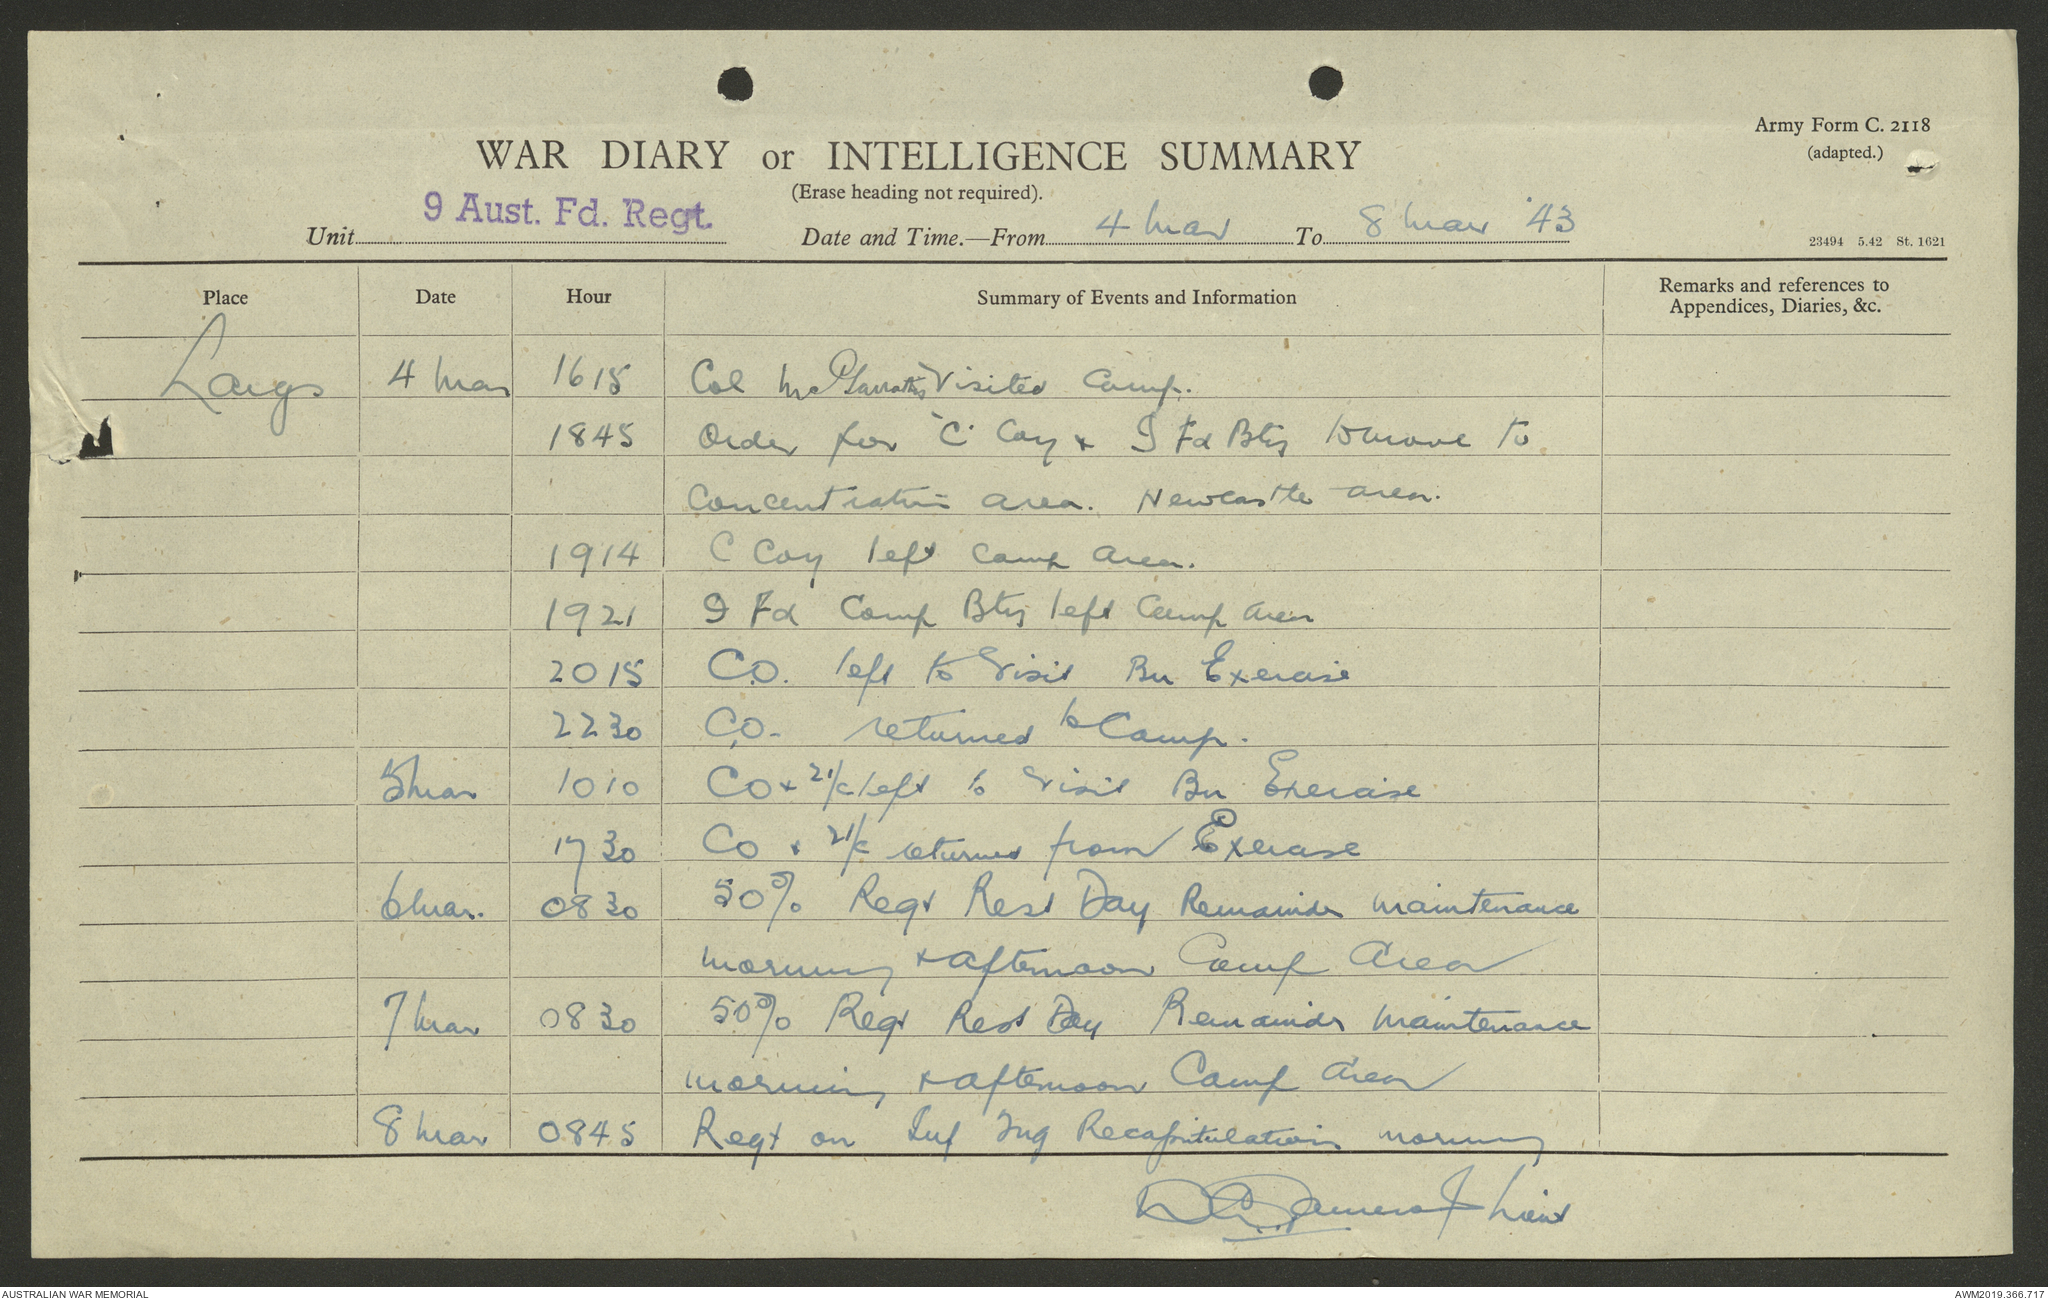 Army Form C. 2118
(adapted.)
WAR DIARY or INTELLIGENCE SUMMARY
(Erase heading not required).
Unit 9 Aust. Fd. Regt. Date and Time.—From 4 Mar To 8 Mar '43
23494 5.42 St. 1621
Place Date Hour Summary of Events and Information Remarks and references to
Appendices, Diaries, &c.
Largs 4 Mar 1615 Col visited Camp.
1845 Order for "C" Coy + 9 Fd Bty to move to
concentration area. Newcastle area.
1914 C Coy left camp area.
1921 9 Fd Comp Bty left Camp area
2015 C.O. left to visit Bn Exercise
2230 C.O. returned to Camp.
5 Mar 1010 CO + 2i/c left to visit Bn Exercise
1730 CO + 2i/c returned from Exercise
6 Mar. 0830 50% Regt Rest Day Remainder maintenance
morning + afternoon Camp Area
7 Mar 0830 50% Regt Rest Day Remainder maintenance
morning + afternoon Camp Area
8 Mar 0845 Regt on Inf Tng Recapitulation morning
Lieut
AUSTRALIAN WAR MEMORIAL AWM2019.366.717